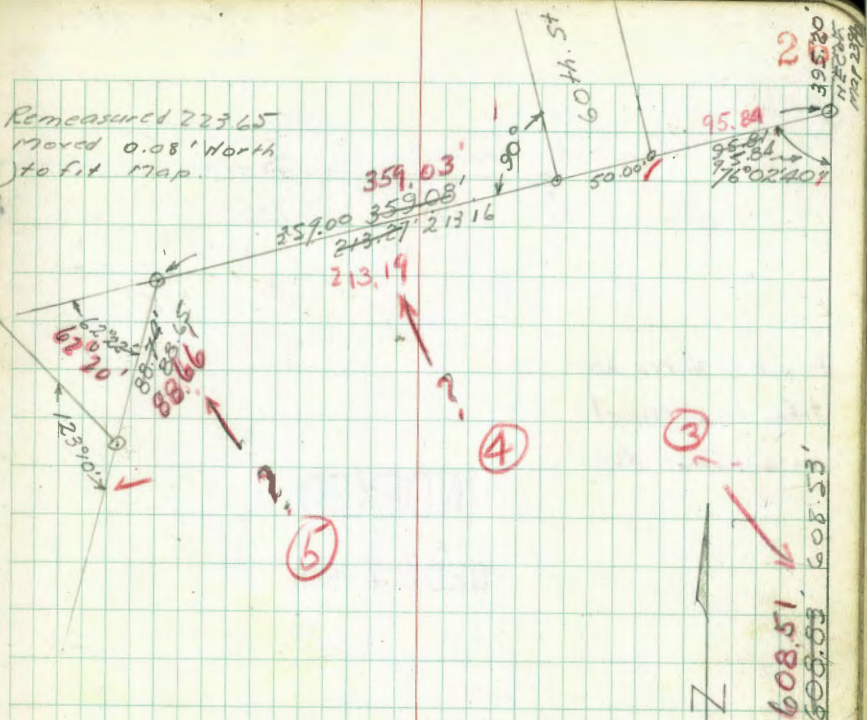 Remeasured 223.65
moved 0.08' North
to fit map.
395.20'
NE COR
60.44
95.84
95.84
76°02'40"
50.00'
90°
359.03'
359.00 359.08'
213.27' 213.16
213.19
62°22'
62°20'
88.74'
88.65
88.66
123°10'
?
5
?
4
3
608.51
608.83' 608.53'
N